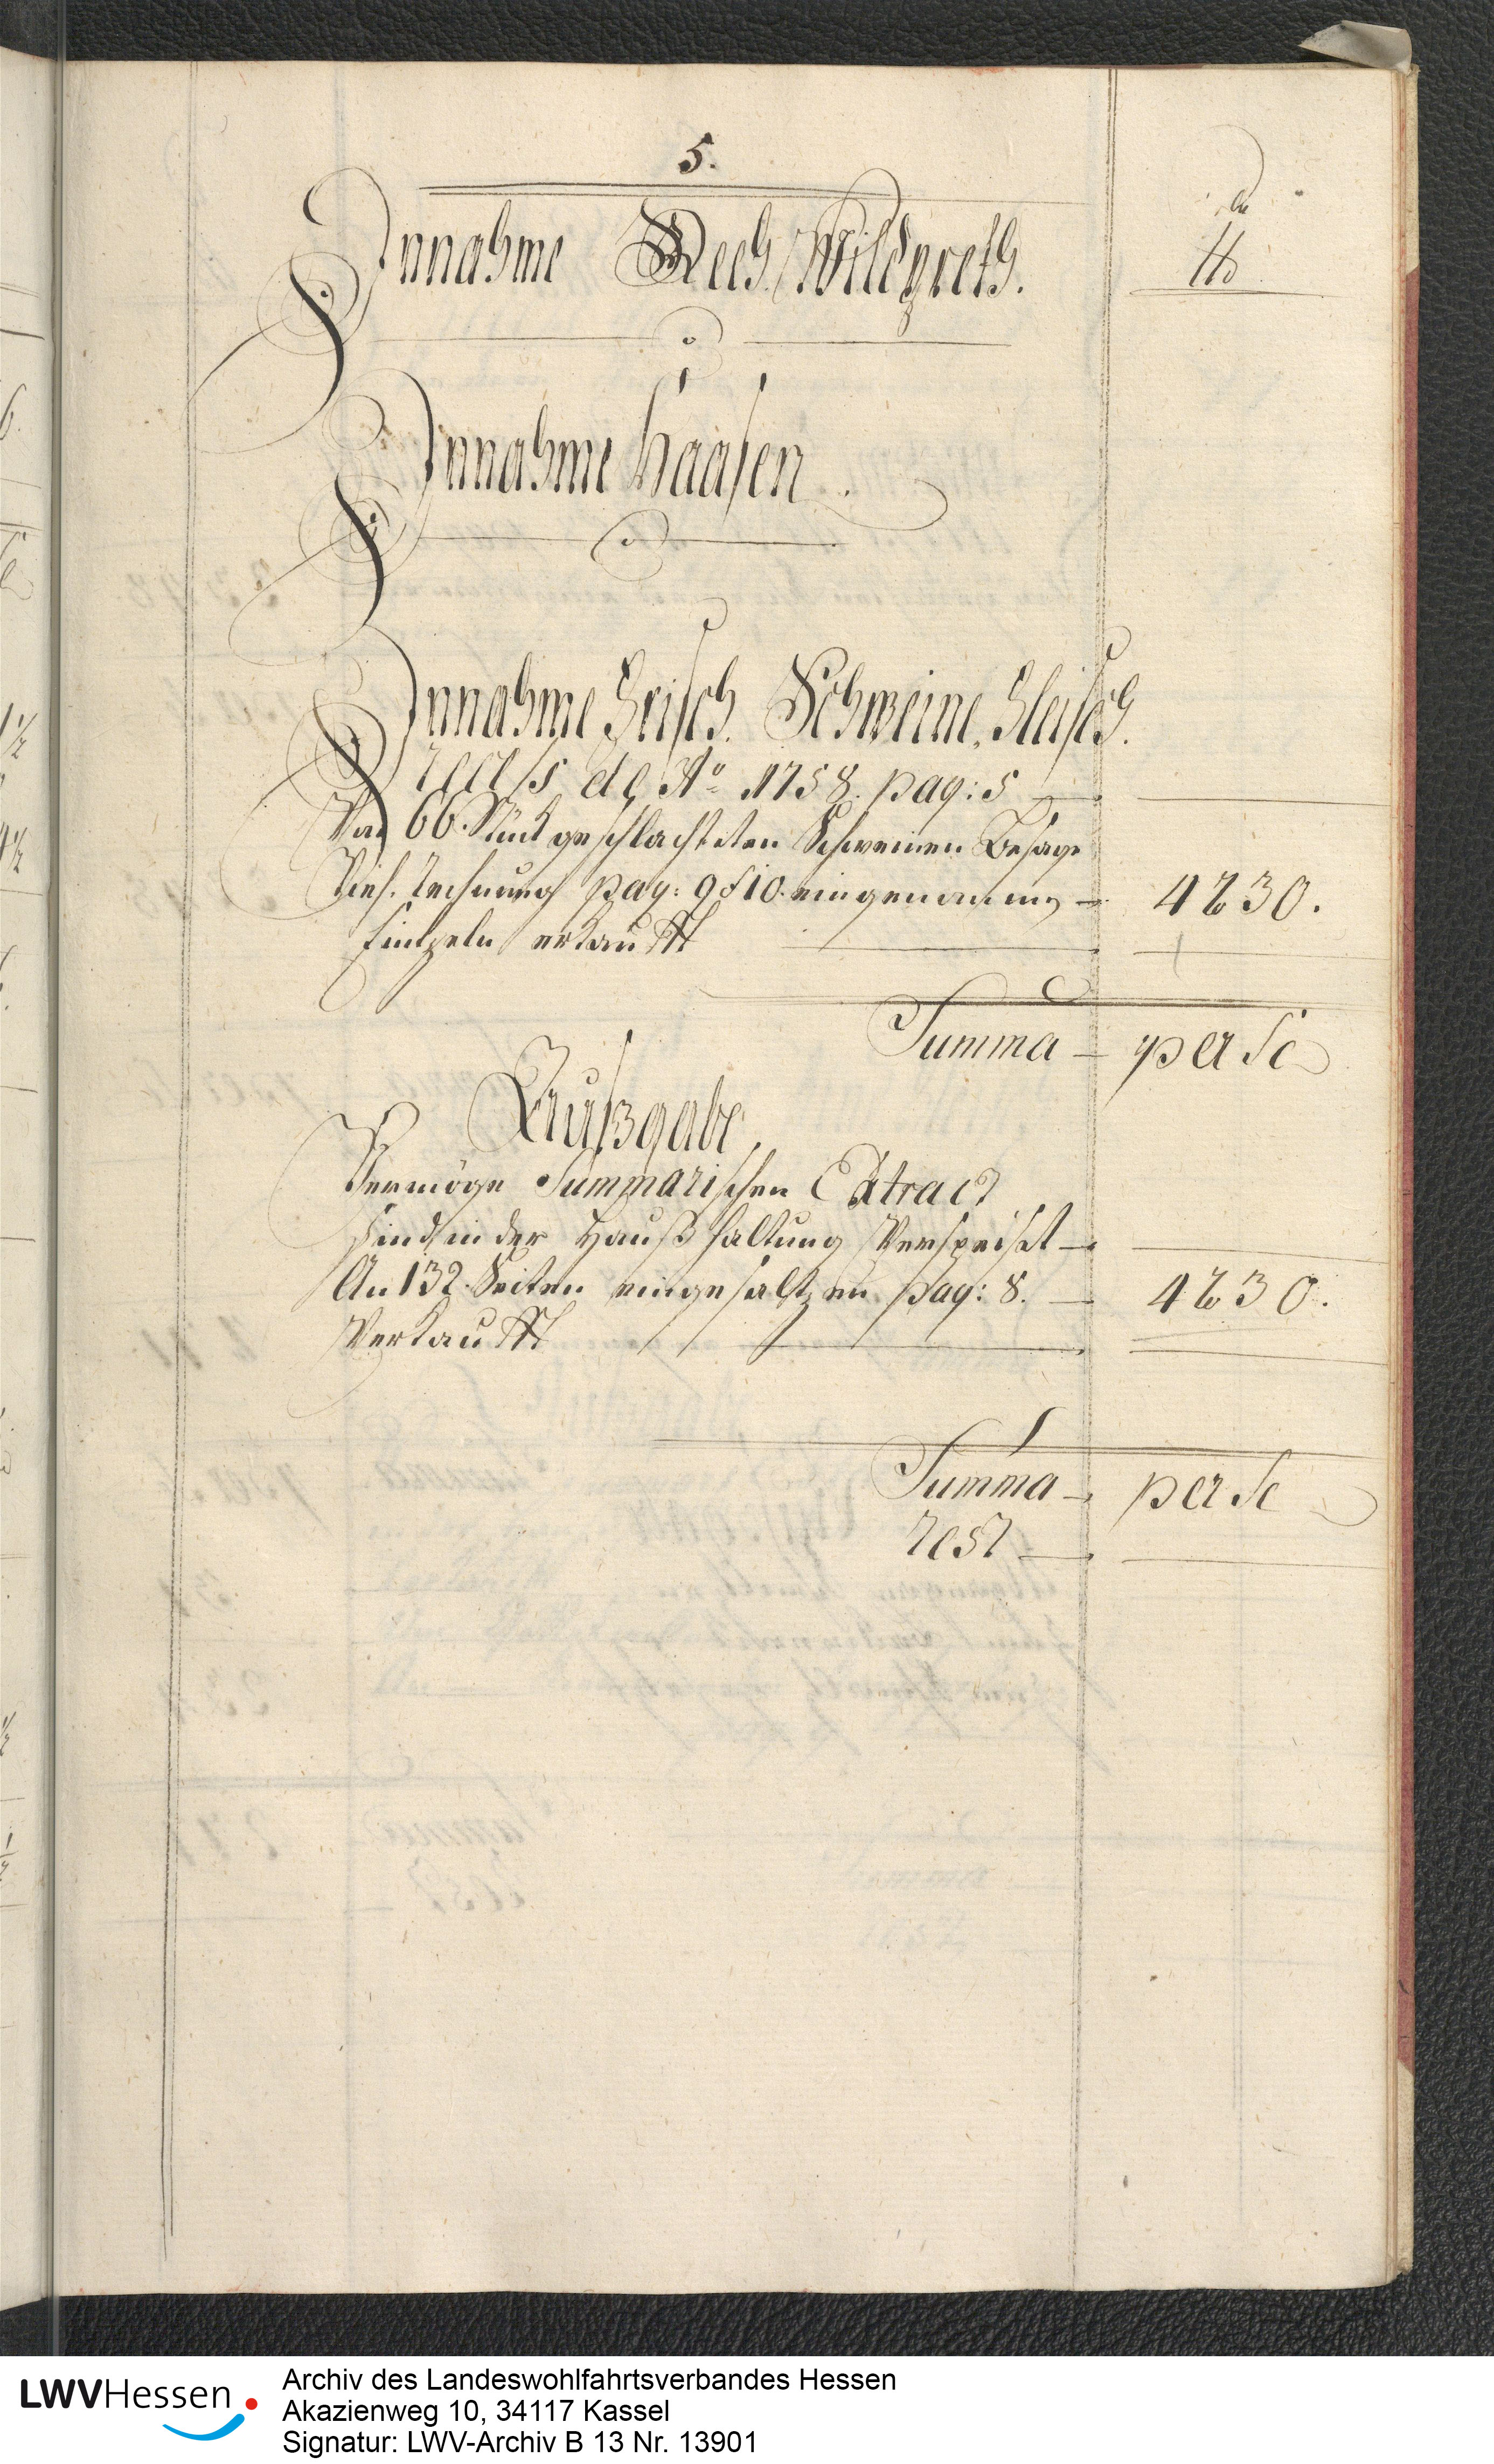 5.
Innahme Reeh Wildpreth.
℔
Innahme Haasen.
Innahme Frisch. Schweine, Fleisch.
Recess de Ao 1758. pag: 5
Von 66. Stück geschlachteten Schweinen Besage
Vieh. Rechnung pag: 9 & 10. eingenommen 4230.
Eintzeln erkaufft
Summa per se
Außgabe,
Vermöge Summarischen Extract
sind in der Haußhaltung Verspeiset
An 132. Seiten eingesaltzen pag: 8. 4230.
Verkaufft
Summa per se
Rest
LWVHessen
Archiv des Landeswohlfahrtsverbandes Hessen
Akazienweg 10, 34117 Kassel
Signatur: LWV-Archiv B 13 Nr. 13901